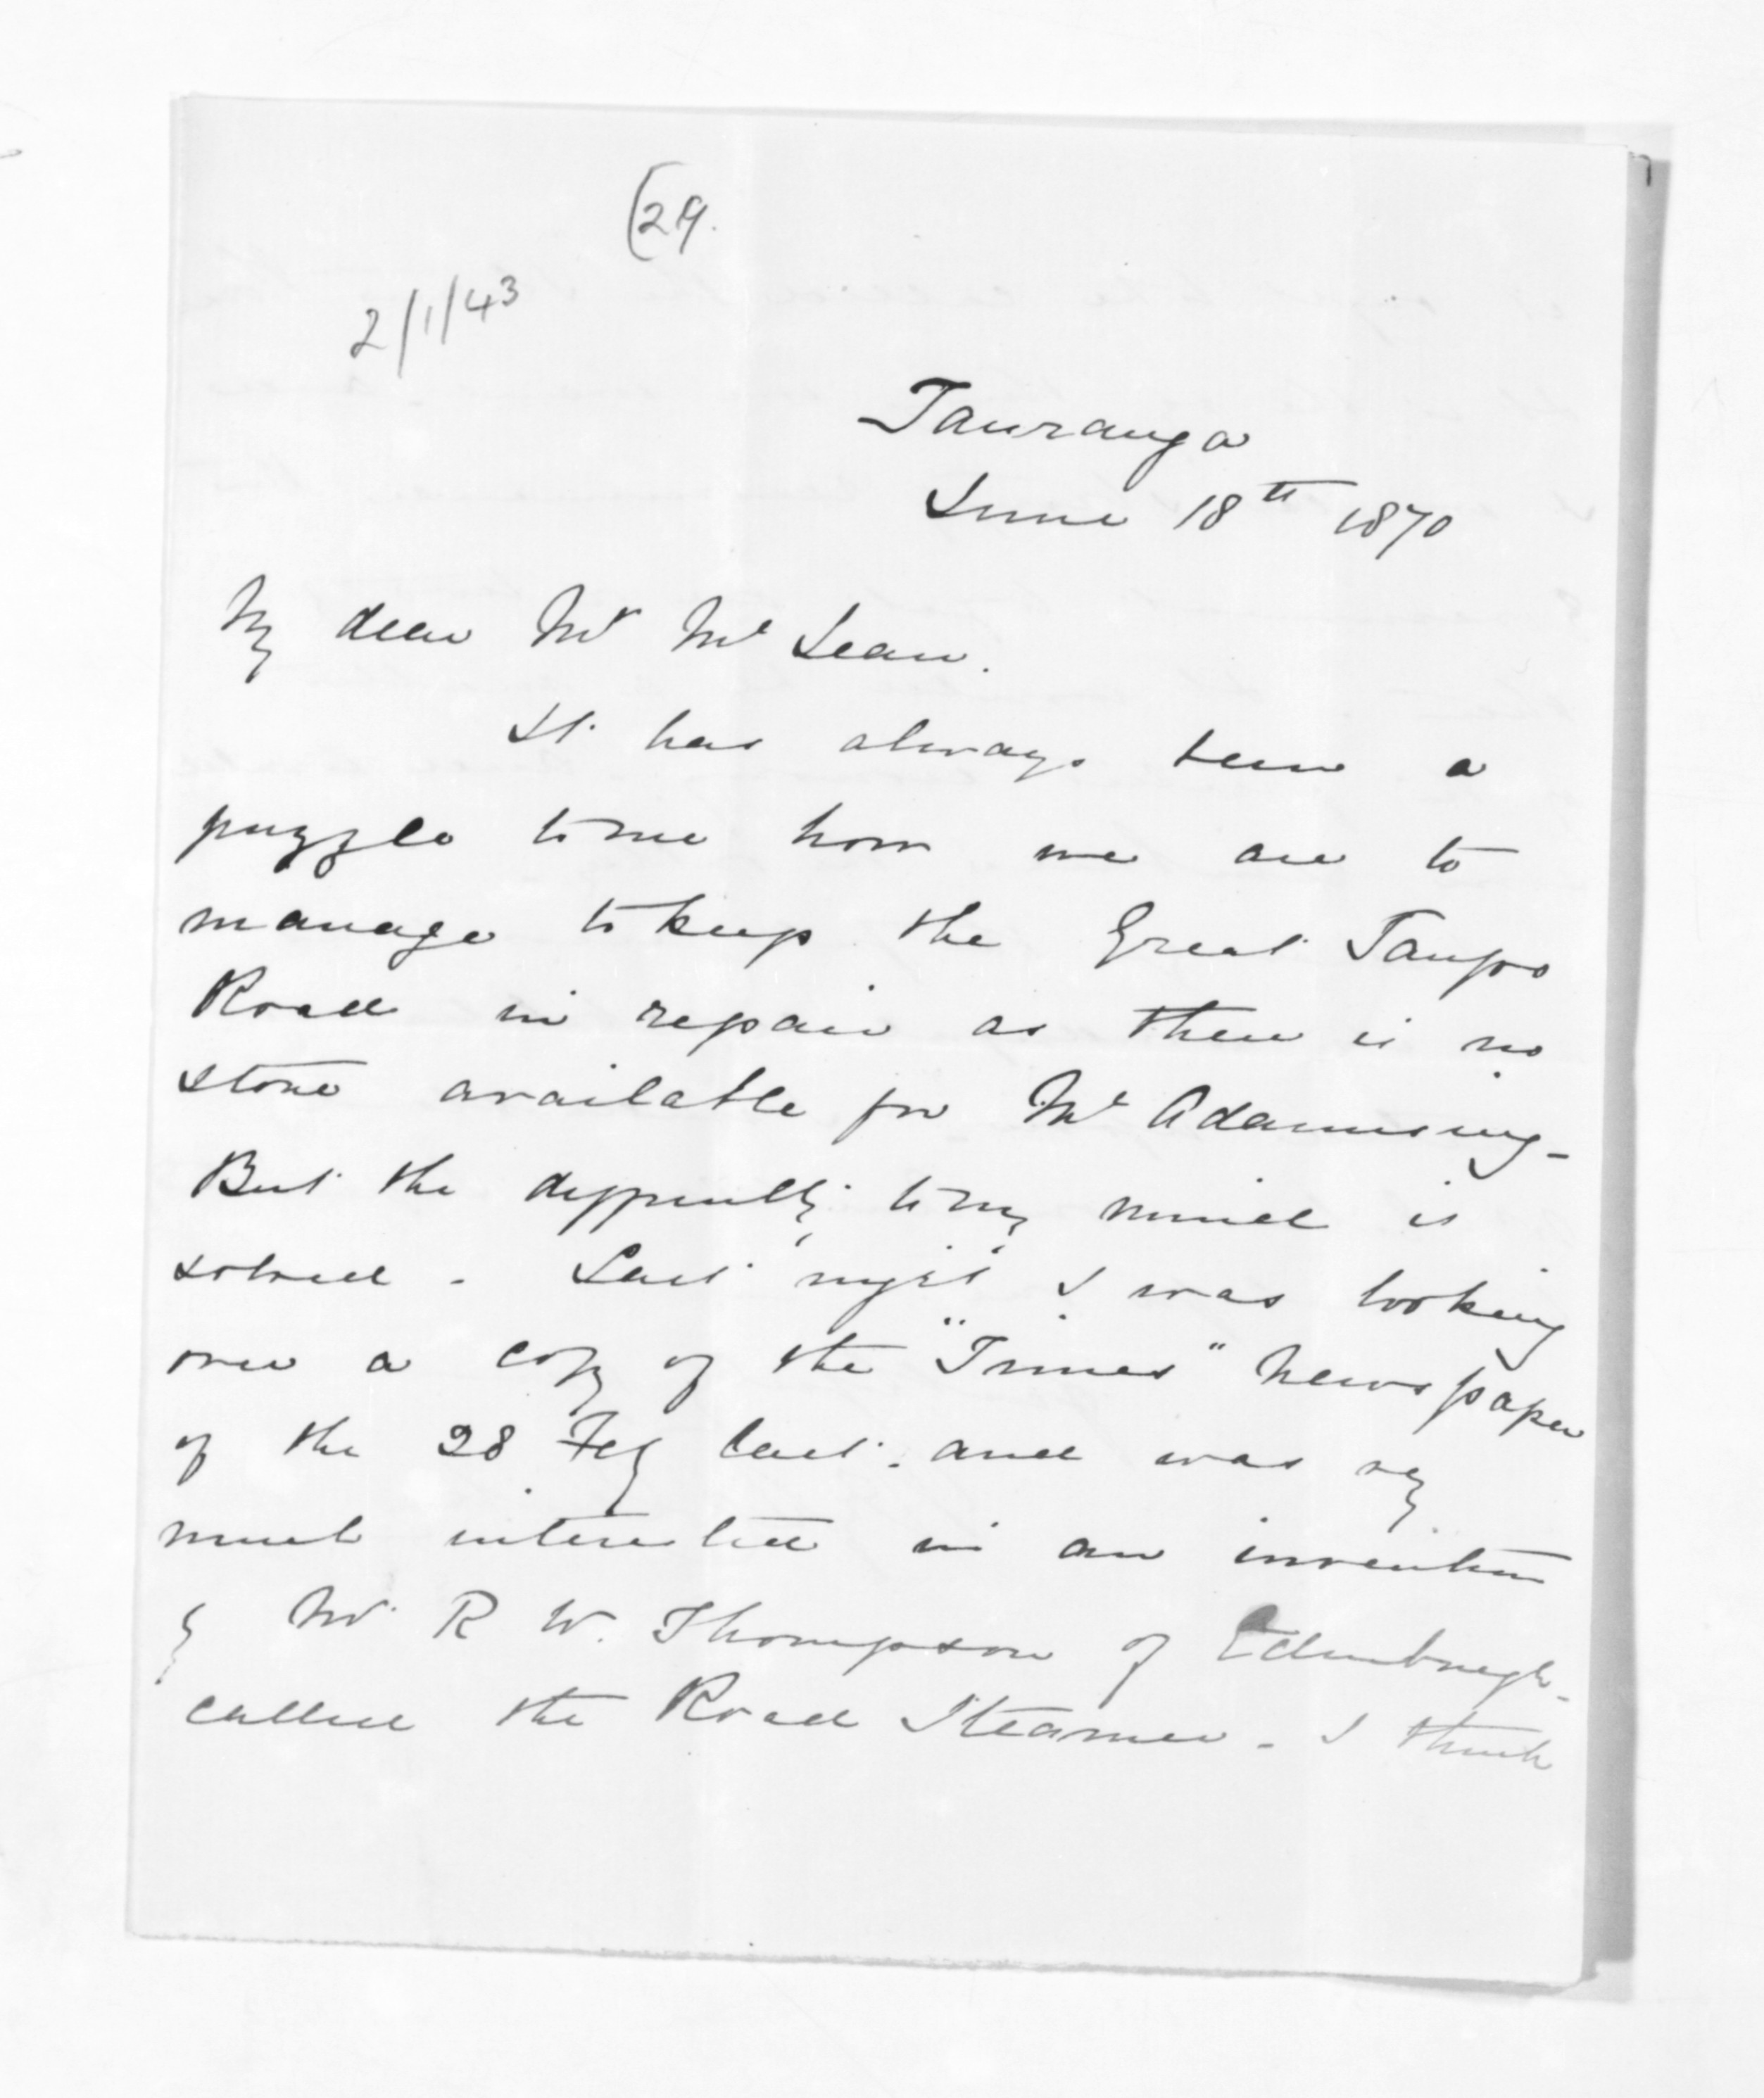 (29.
2/1/43
Tauranga
June 18th 1870
My dear Mr McLean.
It has always been a
puzzle to me how we are to
manage to keep the Great Taupo
Road in repair as there is no
stone available for McAdamising -
But the difficulty to my mind is
solved - Last night I was looking
over a copy of the "Times" Newspaper
of the 28 Feby last. and was very
much interested in an invention
by Mr R W. Thompson of Edinburgh -
called the Road Steamer - I think